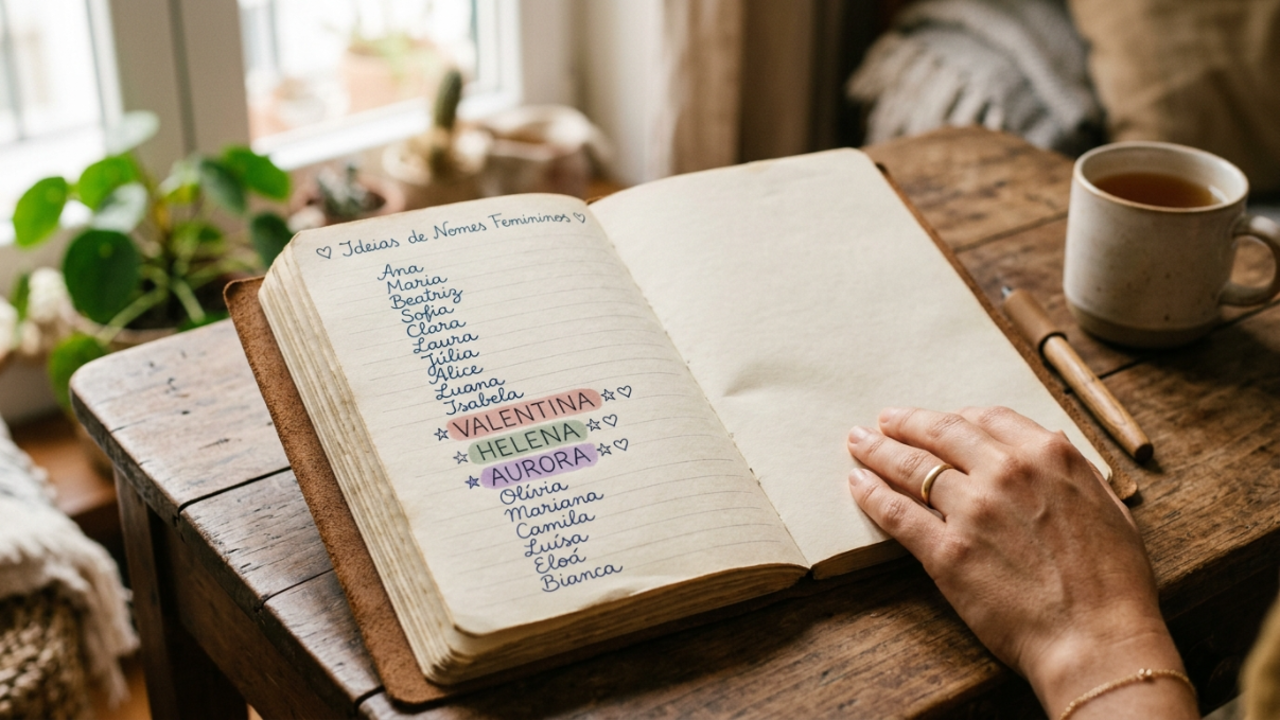 ♡ Ideias de Nomes Femininos ♡
Ana
Maria
Beatriz
Sofia
Clara
Laura
Júlia
Alice
Luana
Isabela
☆ VALENTINA ☆♡
☆ HELENA ☆♡
☆ AURORA ☆♡
Olívia
Mariana
Camila
Luísa
Eloá
Bianca